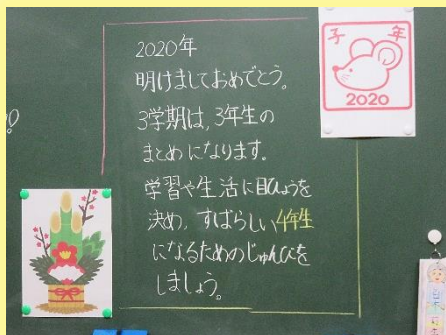 2020年
明けましておめでとう。
3学期は、3年生の
まとめになります。
学習や生活に目ひょうを
決め、すばらしい4年生
になるためのじゅんびを
しましょう。
子年
2020